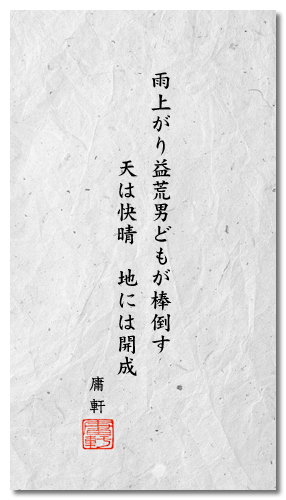 雨上がり益荒男どもが棒倒す
天は快晴　地には開成
庸軒
庸軒